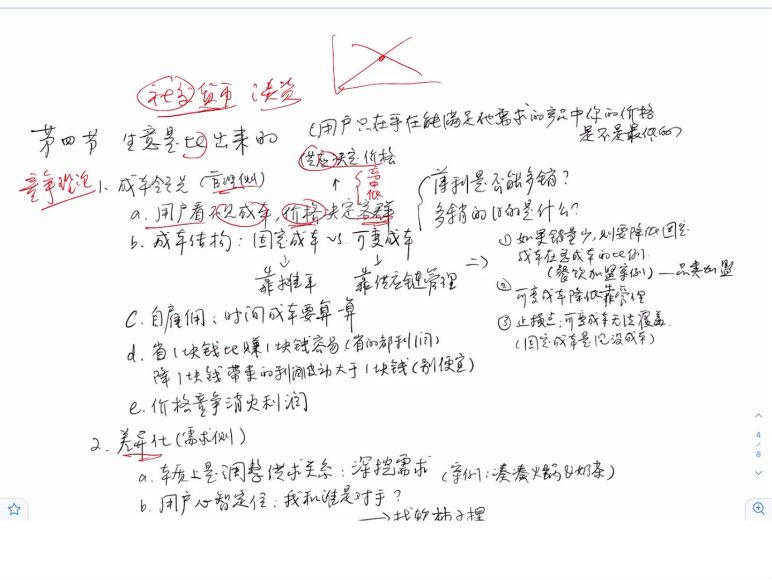 社交货币
第四节 生意是比出来的
(用户只在乎在能满足他需求的产品中你的价格
是不是最低的)
供应决定价格
竞争战略
1. 成本领先(管理侧)
高
中
低
a. 用户看不见成本,价格决定客群
薄利是否能多销?
多销的目的是什么?
b. 成本结构:固定成本 vs. 可变成本
靠摊平
靠供应链管理
① 如果销量少,则要降低固定
成本在总成本的比例.
(餐饮加盟案例)—品类加盟
② 可变成本降低靠管理
③ 止损点:可变成本无法覆盖.
(固定成本是沉没成本)
c. 自雇佣:时间成本要算一算
d. 省1块钱比赚1块钱容易(省的都利润)
降1块钱带来的利润波动大于1块钱(别便宜)
e. 价格竞争消灭利润
2. 差异化(需求侧)
a. 本质上是调整供求关系:深挖需求 (案例:凑凑火锅&奶茶)
b. 用户心智定位:我和谁是对手?
4
/
8